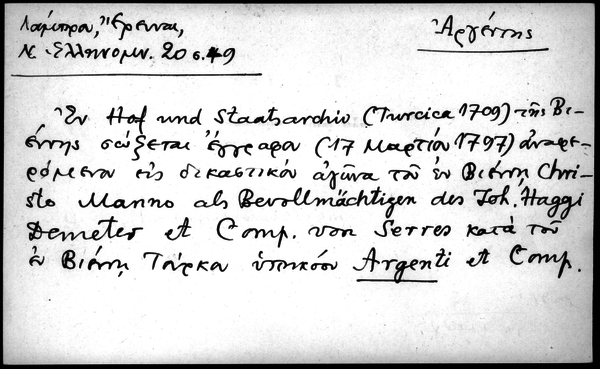 Λάμπρου, Ἔρευναι, Ἀργέντης
Ν. Ἑλληνομν. 20 σ. 49
Ἐν Hof und Staatsarchiv (Turcica 1709) τῆς Βι-
έννης σώζεται ἔγγραφα (17 Μαρτίου 1797) ἀναφε-
ρόμενα εἰς δικαστικὸν ἀγῶνα τοῦ ἐν Βιέννῃ Chri-
sto Manno als Bevollmächtigen des Joh. Haggi
Demeter et Comp. von Serres κατὰ τοῦ
ἐν Βιέννῃ Τούρκου ὑπηκόου Argenti et Comp.